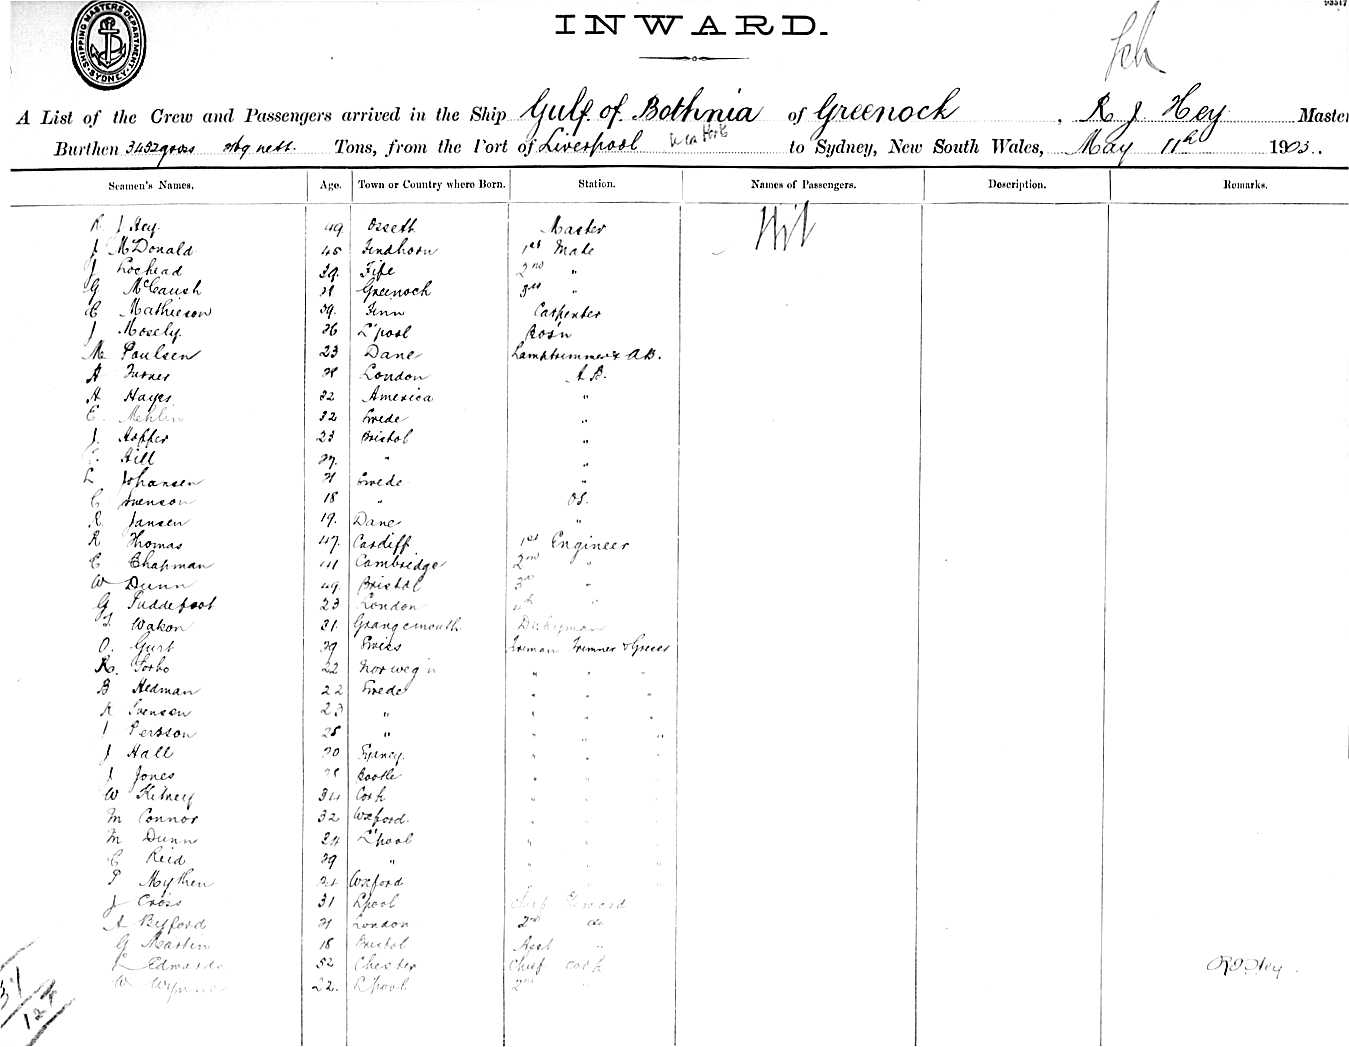 SHIPPING MASTERS DEPARTMENT. SYDNEY
INWARD.
A List of the Crew and Passengers arrived in the Ship Gulf of Bothnia of Greenock, R J Hey Master
Burthen 3452 gross nett. Tons, from the Port of Liverpool to Sydney, New South Wales, May 11th 1903.
Seamen's Names. Age. Town or Country where Born. Station. Names of Passengers. Description. Remarks.
R J Hey 49 Ossett Master Nil
J McDonald 45 Findhorn 1st Mate
J Lochead 39. Fife 2nd "
G McCaush Greenock 3rd "
C Mathieson 39. Finn Carpenter
J Mosely. 36 L'pool Bos'n
M Poulsen 23 Dane Lamptrimmer & AB.
A Turner London A.B.
A Hayes 32 America "
E. Mehlin 32 Swede "
J. Hoffer 23 Bristol "
Hill " "
L Johansen Swede "
C Svenson 18 " OS.
R Jansen 19. Dane "
R Thomas 47. Cardiff 1st Engineer
C Chapman 41 Cambridge 2nd "
W Dunn 49 Bristol 3rd "
G Puddefoot 23 London 4th "
Wakon 31 Grangemouth Dkeyman
O. Gurt 39 Swiss Fireman Trimmer & Greaser
R. Torbo 22 Norweg'n " " "
B Hedman 22 Swede " " "
A Svenson 23 " " " "
I Persson 28 " " " "
J Hall 30 Sydney. " " "
J Jones Bootle " "
W Kitney 34 Cork " "
M Connor 32 Wexford. " "
M Dunn 34 L'pool " " "
C Reid 39 " " " "
P Mythen Wexford " "
J Cross 31 L'pool Chief Steward
A Byford London 2nd do
G Martin 18 Bristol Asst "
L Edwards 52 Chester Chief Cook R J Hey.
W Wynne 22. L'pool 2nd "